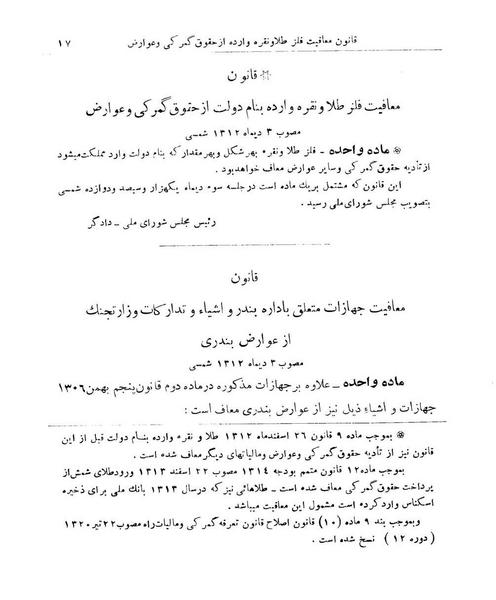 قانون معافیت فلز طلا و نقره وارده از حقوق گمرکی و عوارض ۱۷
* قانون
معافیت فلز طلا و نقره وارده بنام دولت از حقوق گمرکی و عوارض
مصوب ۳ دیماه ۱۳۱۲ شمسی
* ماده واحده ـ فلز طلا و نقره بهر شکل و بهر مقدار که بنام دولت وارد مملکت میشود
از تأدیه حقوق گمرکی و سایر عوارض معاف خواهد بود .
این قانون که مشتمل بریک ماده است در جلسه سوم دیماه یکهزار و سیصد و دوازده شمسی
بتصویب مجلس شورای ملی رسید .
رئیس مجلس شورای ملی ـ دادگر
قانون
معافیت جهازات متعلق باداره بندر و اشیاء و تدارکات وزارت جنگ
از عوارض بندری
مصوب ۳ دیماه ۱۳۱۲ شمسی
ماده واحده ـ علاوه بر جهازات مذکوره در ماده دوم قانون پنجم بهمن ۱۳۰۶
جهازات و اشیاء ذیل نیز از عوارض بندری معاف است :
* بموجب ماده ۹ قانون ۲۶ اسفند ماه ۱۳۱۲ طلا و نقره وارده بنام دولت قبل از این
قانون نیز از تأدیه حقوق گمرکی و عوارض و مالیاتهای دیگر معاف شده است .
بموجب ماده ۱۲ قانون متمم بودجه ۱۳۱۴ مصوب ۲۲ اسفند ۱۳۱۳ ورود طلای شمش از
پرداخت حقوق گمرکی معاف شده است ـ طلاهائی نیز که در سال ۱۳۱۳ بانک ملی برای ذخیره
اسکناس وارد کرده است مشمول این معافیت میباشد .
و بموجب بند ۹ ماده (۱۰) قانون اصلاح قانون تعرفه گمرکی و مالیات راه مصوب ۲۲ تیر ۱۳۲۰
( دوره ۱۲ ) نسخ شده است .